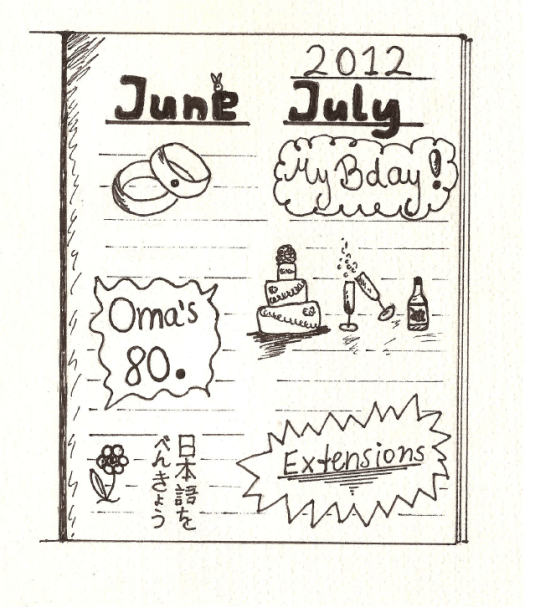 2012
June
July
My Bday!
Oma's
80.
日本語を
べんきょう
Extensions